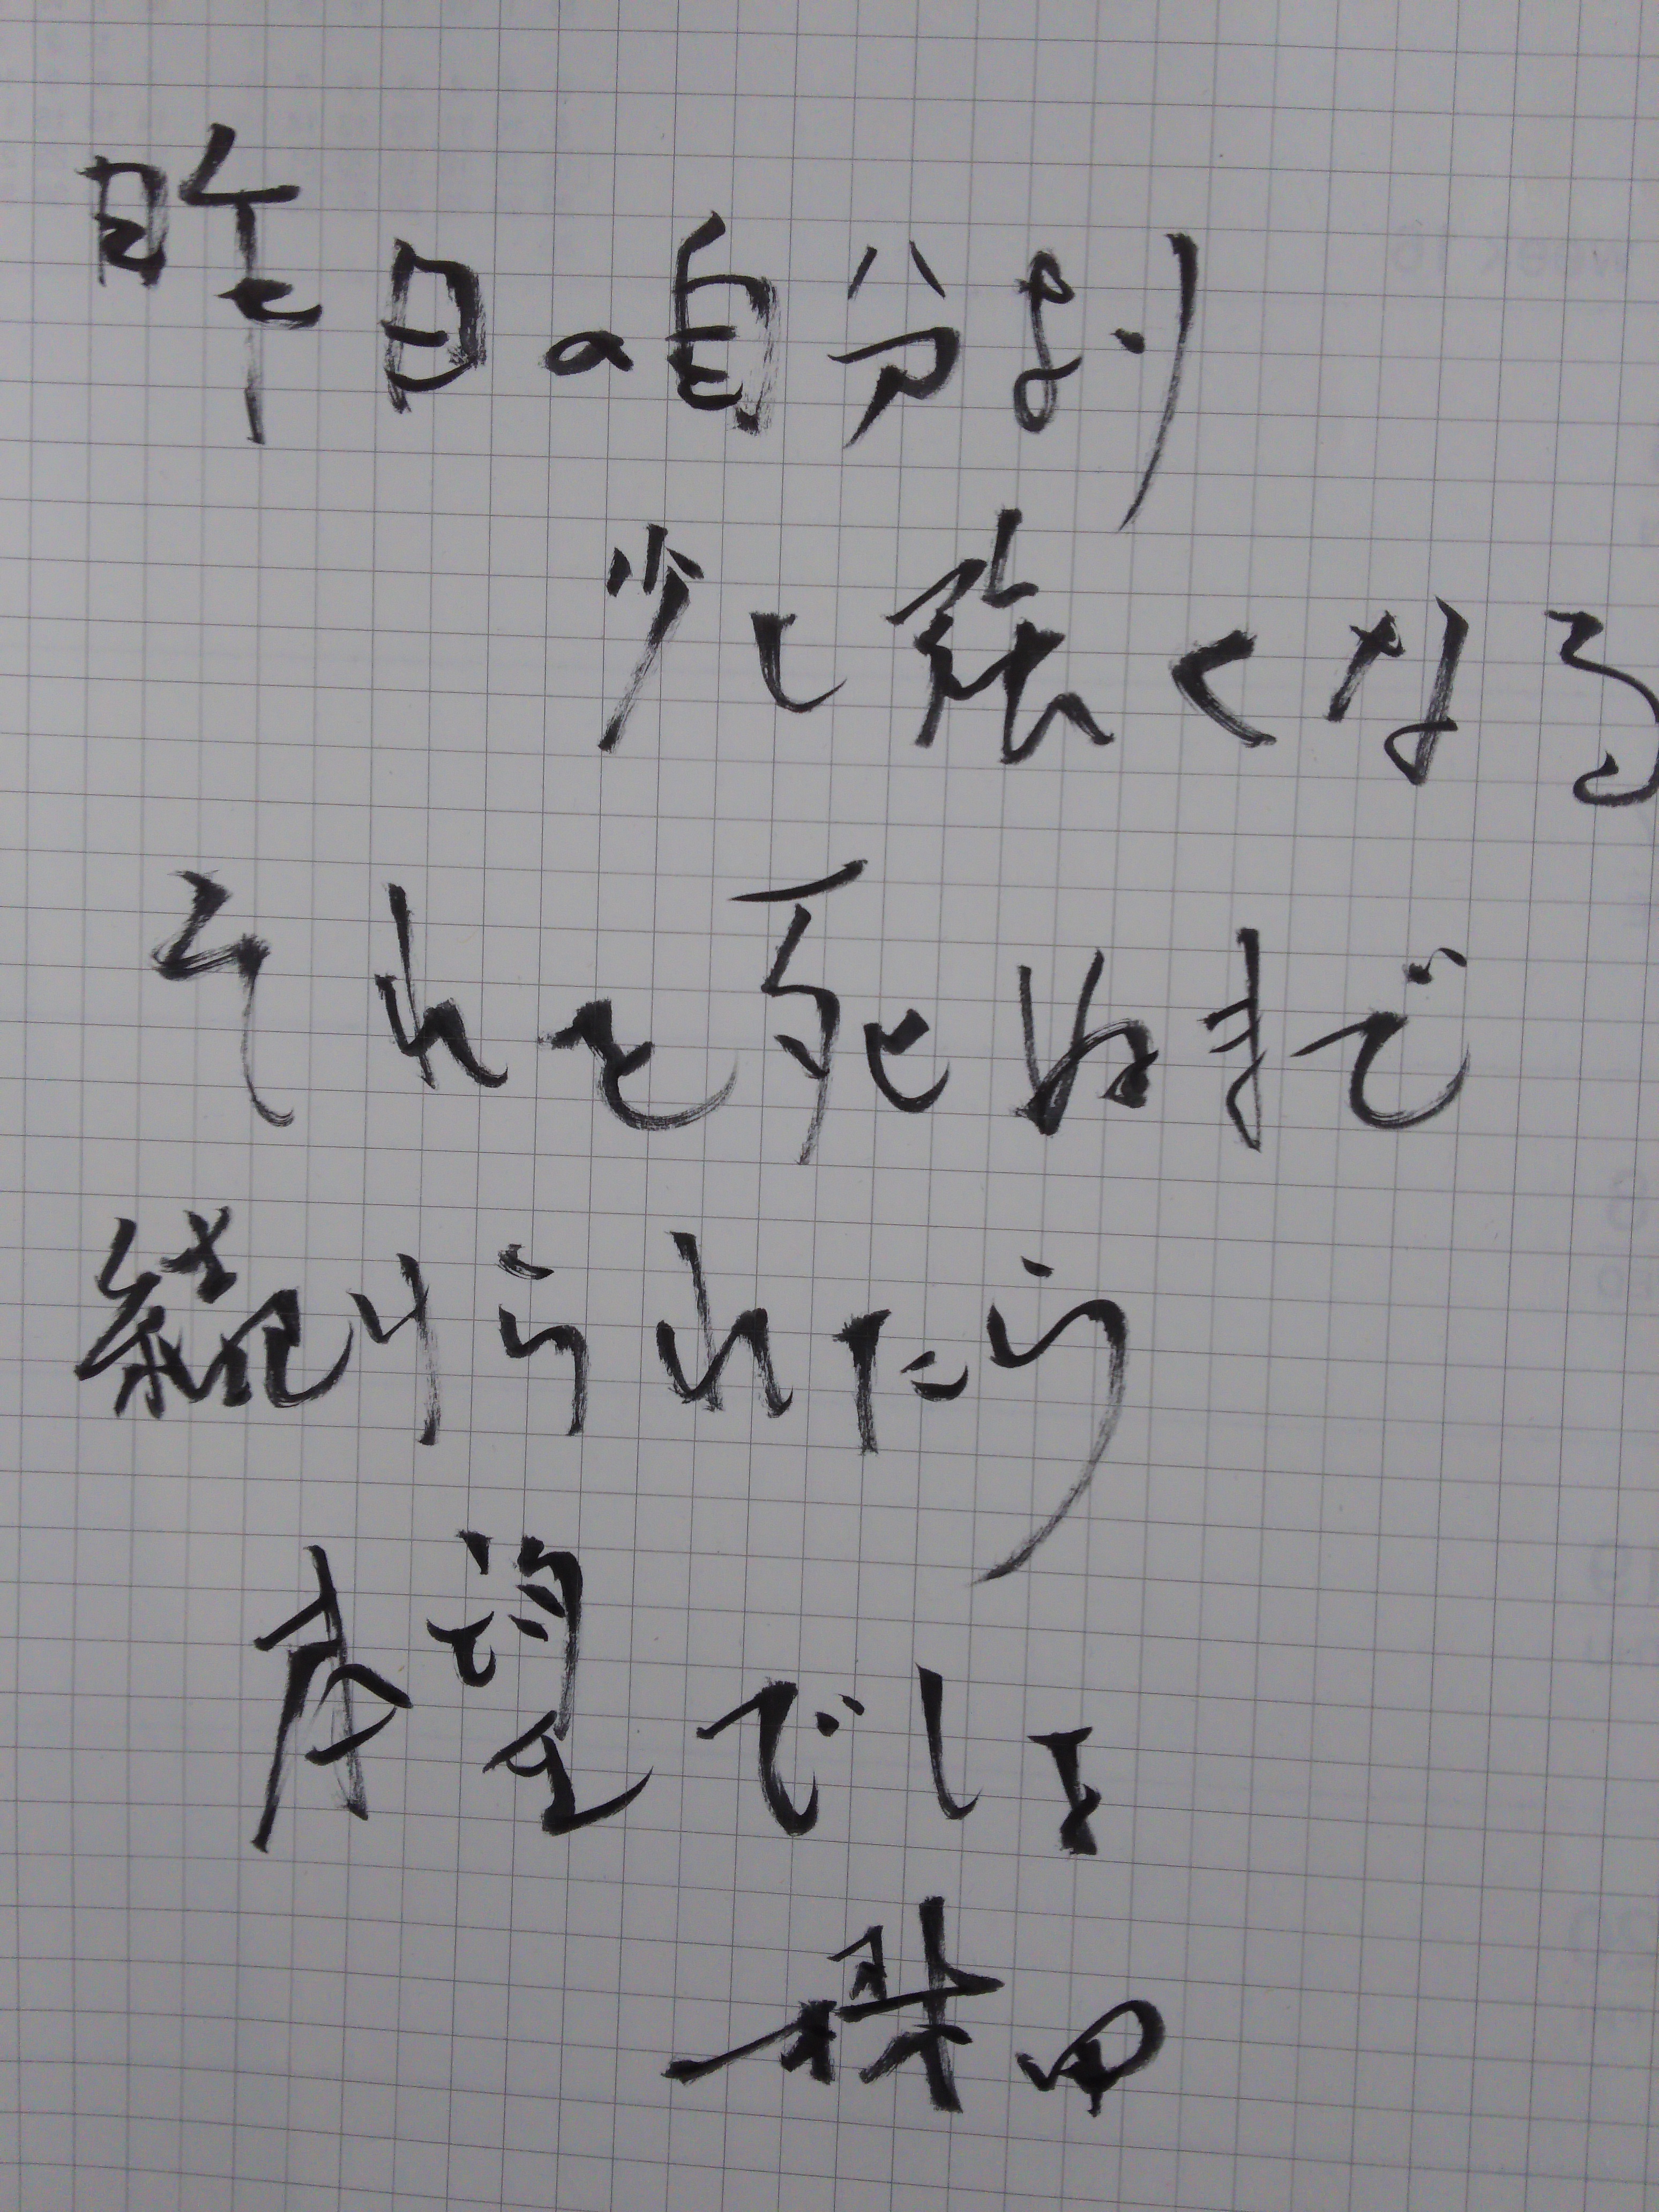 昨日の自分より
少し強くなる
それを死ぬまで
続けられたら
本望でしょ